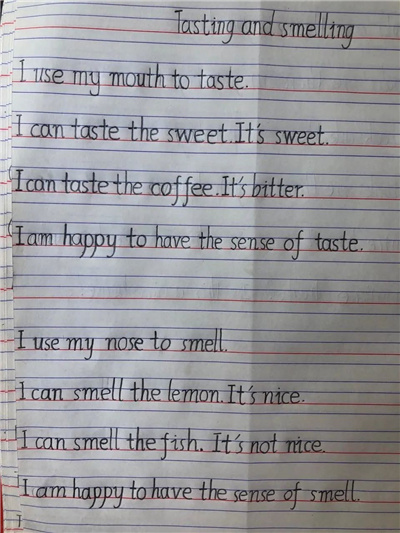 Tasting and smelling
I use my mouth to taste.
I can taste the sweet. It's sweet.
I can taste the coffee. It's bitter.
I am happy to have the sense of taste.
I use my nose to smell.
I can smell the lemon. It's nice.
I can smell the fish. It's not nice.
I am happy to have the sense of smell.